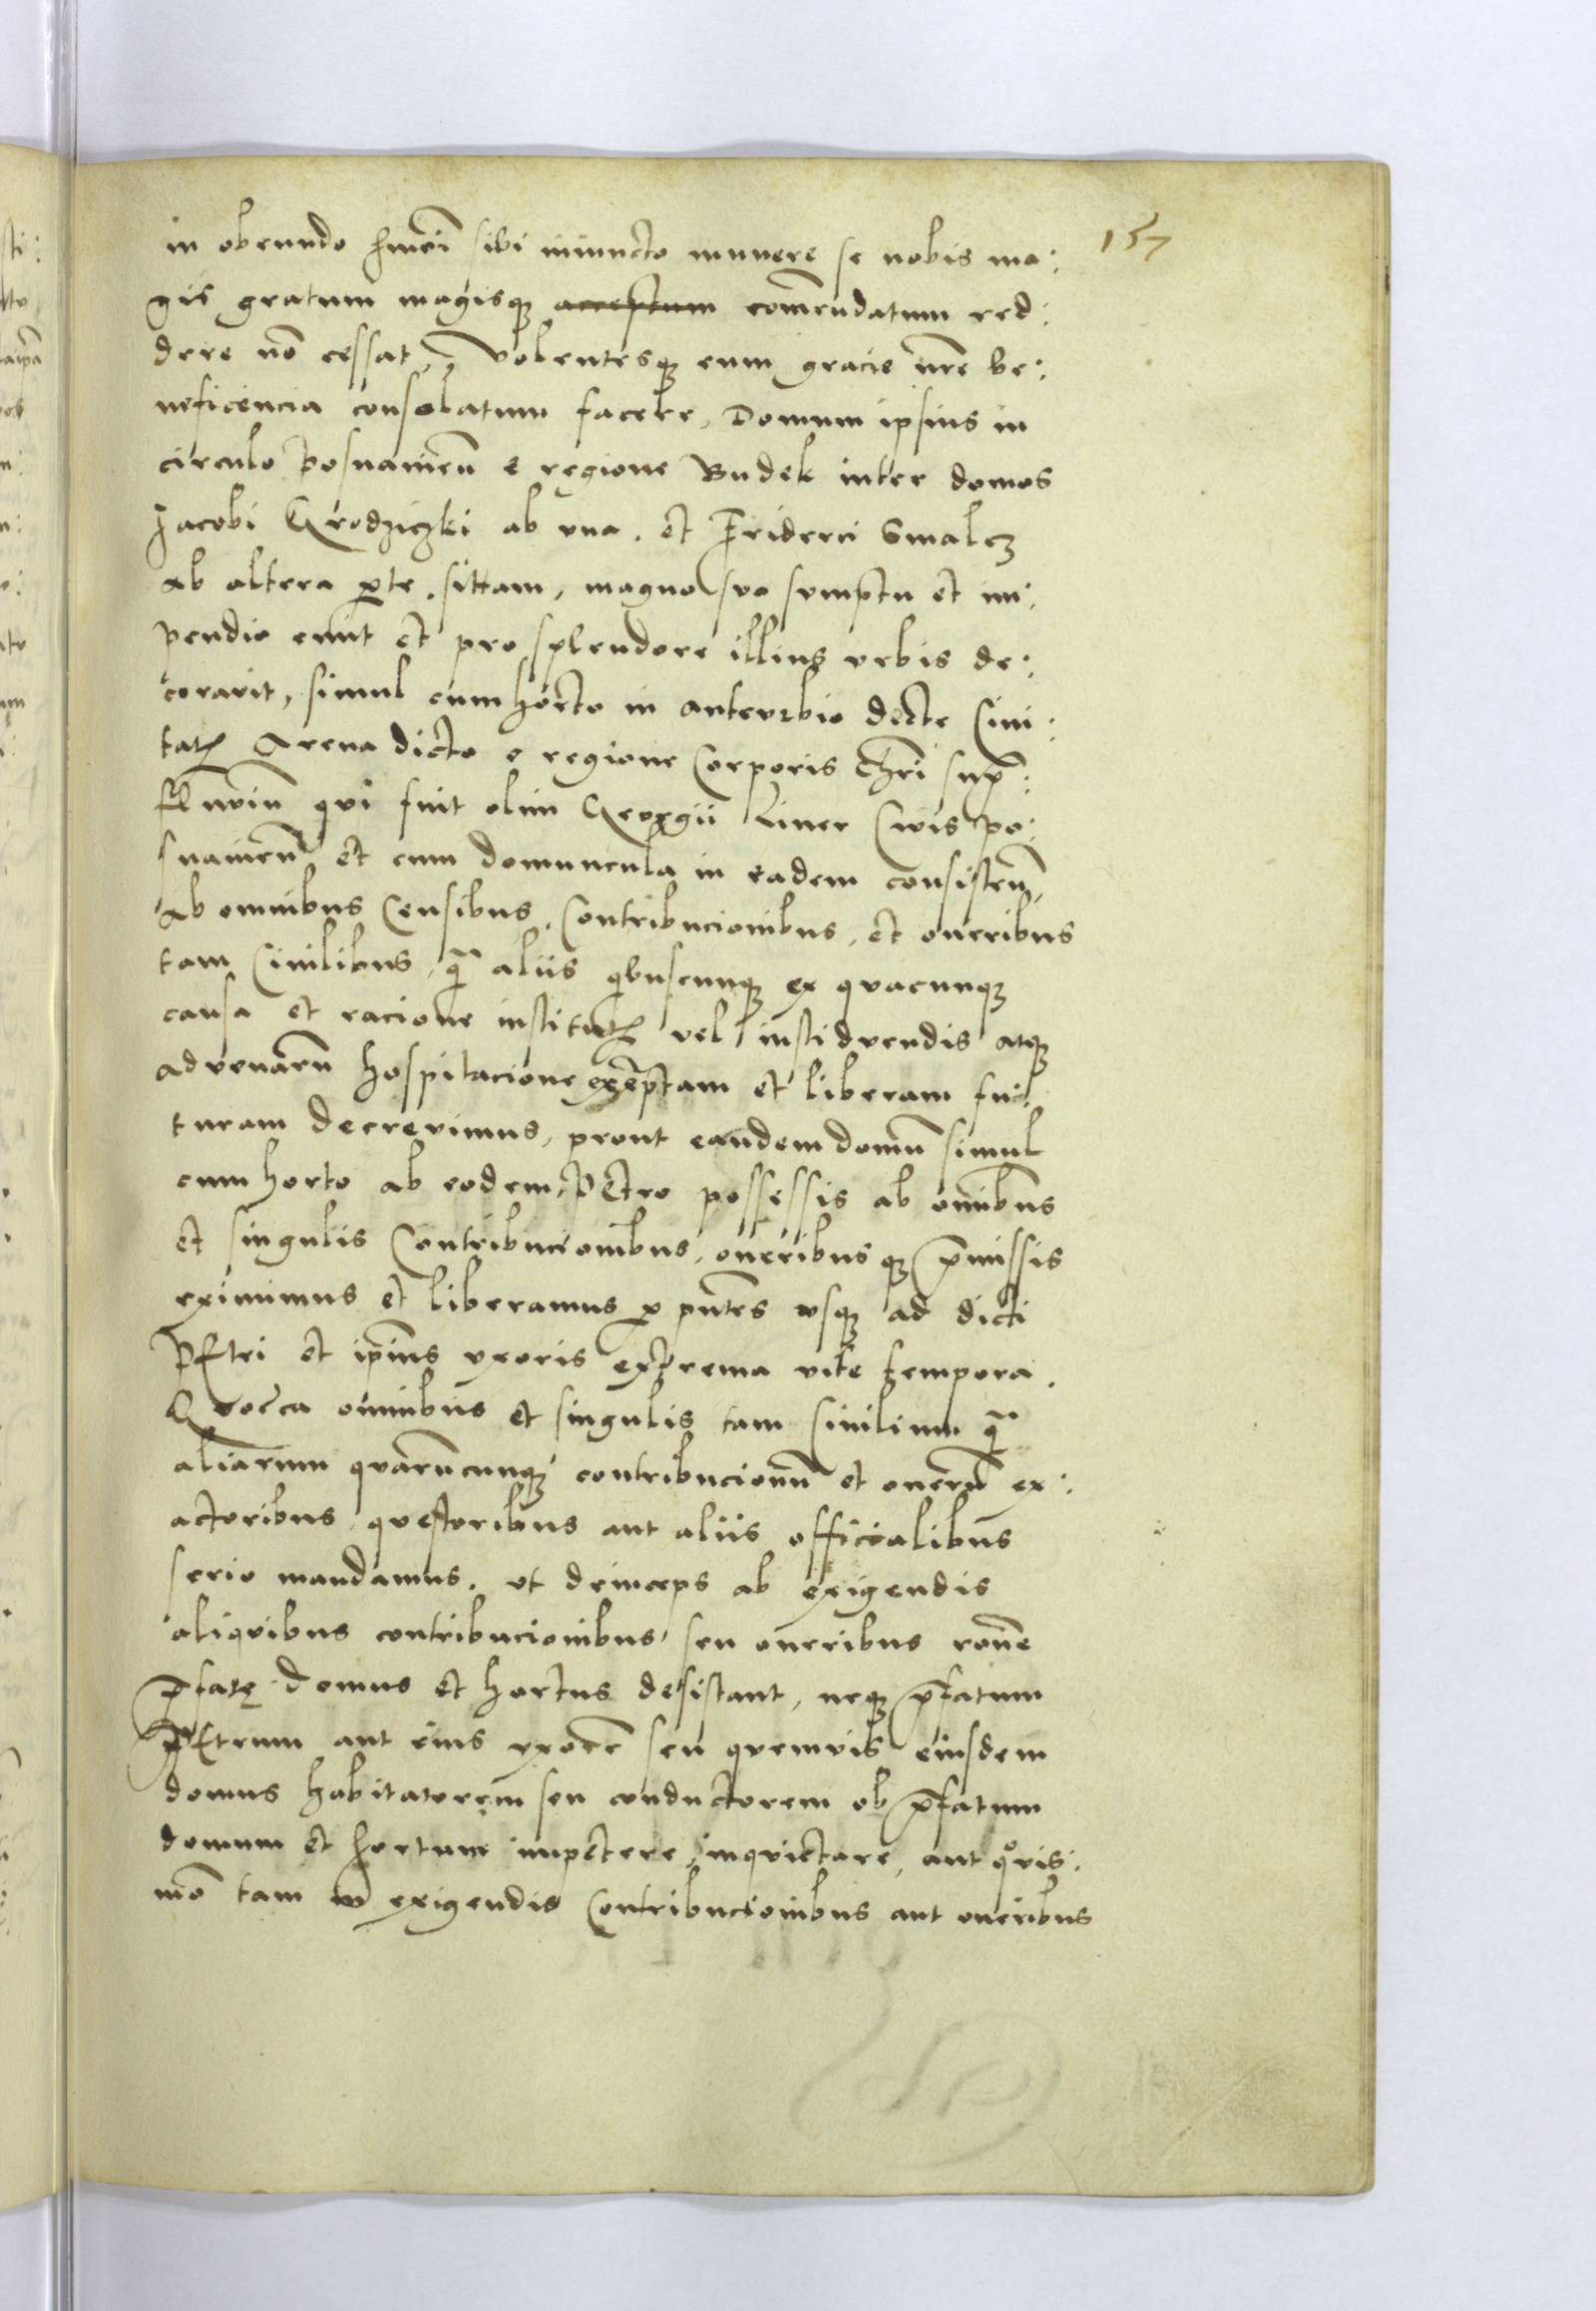 157
in obeundo hmoi sibi iniuncto munere se nobis ma:
gis gratum magisqȝ acceptum comendatum red:
dere nō cessat, Volentesqȝ eum gracie nr̄e be:
neficencia consolatum facere, Domum ipsius in
circulo Posnanien̄ e regione Budek inter domos
Jacobi Grodziczki ab vna. et Friderici Smalcz
ab altera pte. sittam, magno suo sumptu et im:
pendio emit et pro splendore illius vrbis de:
coravit, simul cum horto in antevrbio dicte Ciui:
tatꝭ Arena dicto e regione Corporis Chri sup
fluuiū qui fuit olim Georgii Liner Civis po:
snanien̄ et cum domuncula in eadem consisten̄,
ab omnibus Censibus. Contribucionibus, et oneribus
tam Ciuilibus, q̄ aliis qbuscunqȝ ex quacunqȝ
causa et racione institutꝭ vel instidvendis atqȝ
advenarū hospitacione exēptam et liberam fu:
turam decrevimus, prout eandem domū simul
cum horto ab eodem PEtro possessis ab omībus
et singulis Contribucionibus, oneribusqȝ p̄missis
eximimus et liberamus ꝑ pn̄tes vsqȝ ad dicti
PEtri et ip̄ius vxoris extrema vite tempora.
Quocca omnibus et singulis tam Ciuilium q̄
aliarum quarūcunqȝ contribucionū et onerū ex:
actoribus questoribus aut aliis officialibus
serio mandamus. vt deinceps ab exigendis
aliquibus contribucionibus seu oneribus rōne
p̄fatę domus et hortus desistant, neqȝ p̄fatum
PEtrum aut eius vxorē seu quemvis eiusdem
domus habitatorem seu conductorem ob p̄fatum
domum et hortum impetere, inquietare, aut quis:
mō tam in exigendis Contribucionibus aut oneribus